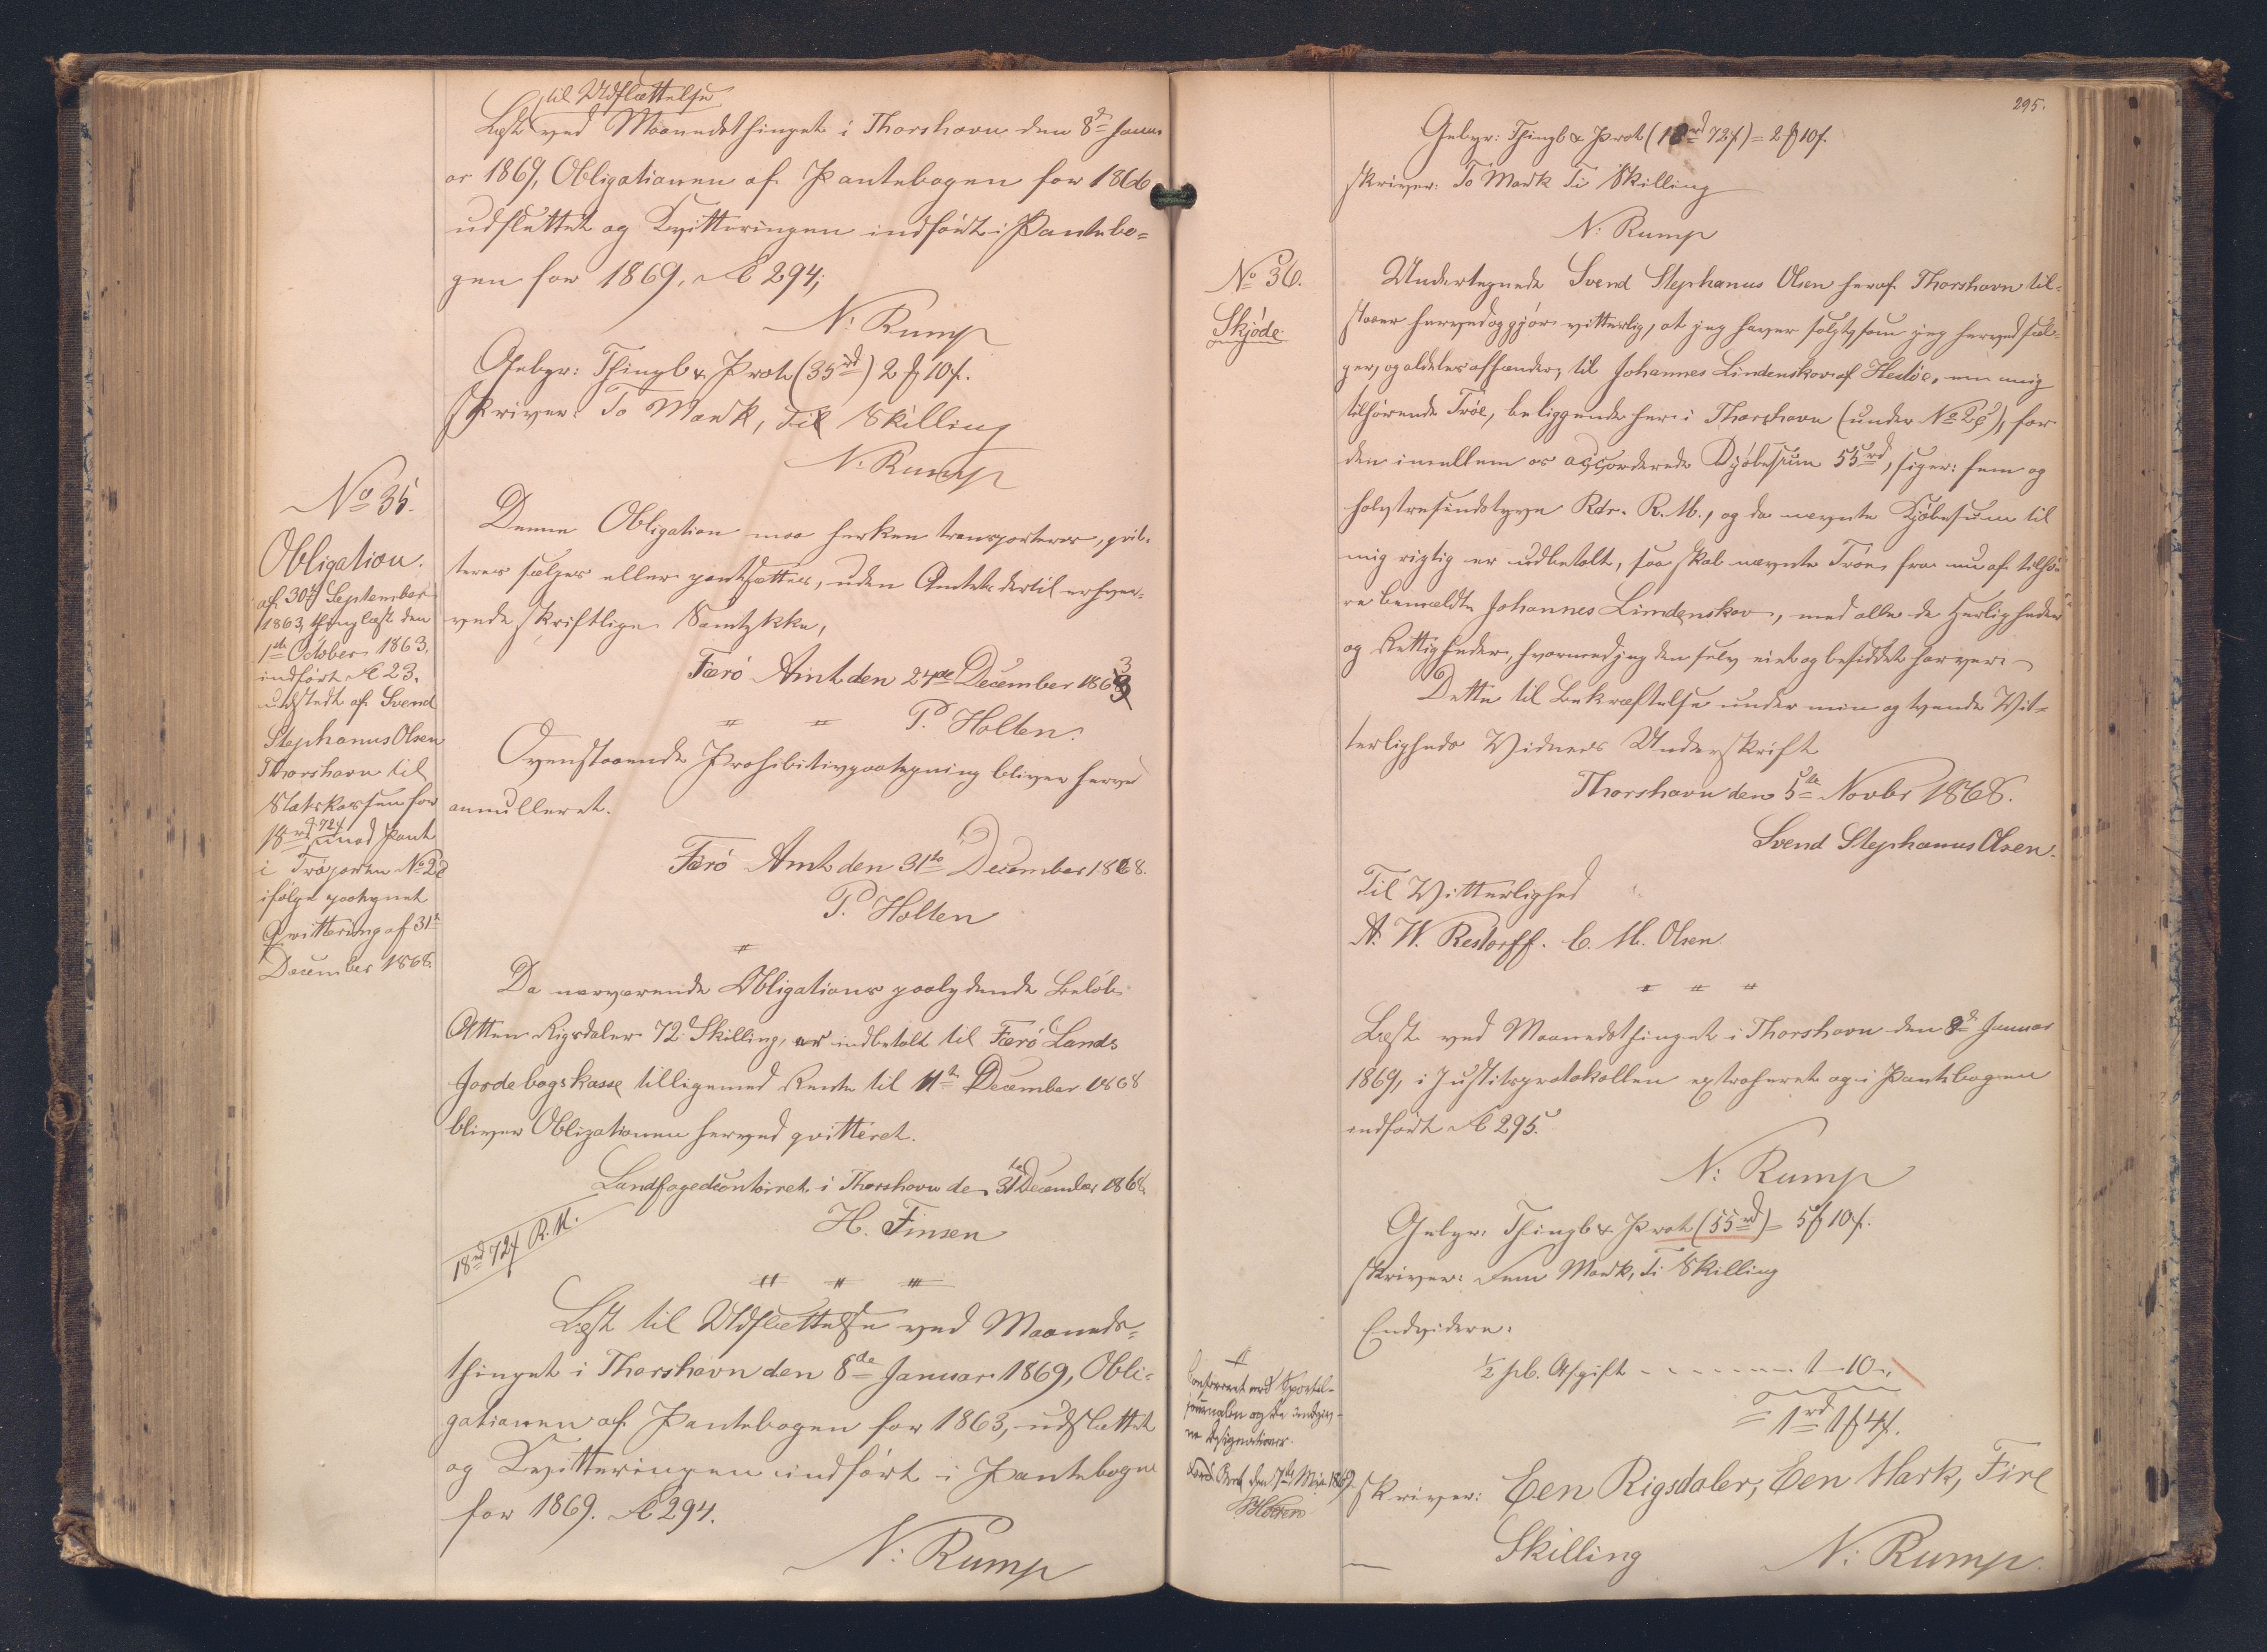 til Udslættelse
Læst ved Maanedsthinget i Thorshavn den 8de Janu-
ar 1869, Obligationen af Pantebogen for 1866
udslettet og Qvitteringen indført i Pantebo=
gen for 1869. Fol 294,
N: Rump
Gebyr: Thingl & Prot (35rd) 2 ₰ 10 s.
skriver: To Mark, Ti Skilling
N. Rump
No 35.
Obligation.
af 30te September
1863, thinglæst den
1ste October 1863,
indført Fol 23.
udstedt af Svend
Stephanus Olsen
Thorshavn til
Statskassen for
18rd 72 s mod Pant
i Trøparten No 2e
ifølge paategnet
Qvittering af 31te
December 1868.
Denne Obligation maa herken transporteres, qvit-
teres sælges eller pantsættes, uden Amtets dertil erhver-
vede skriftlige Samtykke,
Færø Amt den 24de December 1863
P. Holten.
Ovenstaaende Prohibitivpaategning bliver herved
annulleret.
Færø Amt den 31te December 1868.
P. Holten
Da nærværende Obligations paalydende Beløb
Atten Rigsdaler 72 Skilling, er indbetalt til Færø Lands
Jordebogskasse tilligemed Rente til 11te December 1868
bliver Obligationen herved qvitteret.
Landfogedcontoiret i Thorshavn den 31te December 1868.
H. Finsen
18rd 72 s R. M.
Læst til Udslættelse ved Maaneds=
thinget i Thorshavn den 8de Januar 1869, Obli=
gationen af Pantebogen for 1863, udslettet
og Qvitteringen indført i Pantebogen
for 1869. Fol 294.
N: Rump
295.
Gebyr: Thingl & Prot (18rd 72 s) = 2 ₰ 10 s.
skriver: To Mark Ti Skilling
N: Rump
No 36.
Skjøde.
Undertegnede Svend Stephanus Olsen heraf Thorshavn til-
staaer herved og gjør vitterlig, at jeg haver solgt, som jeg herved sæl-
ger, og aldeles afhænder, til Johannes Lindenskov af Hestøe, en mig
tilhørende Trøe, beliggende her i Thorshavn (under No 2e), for
den imellem os accorderede Kjøbesum 55rd, siger: fem og
halvtresindstyve Rdr. R. M., og da nævnte Kjøbesum til
mig rigtig er udbetalt, saa skal nævnte Trøe, fra nu af tilhø-
re bemældte Johannes Lindenskov, med alle de Herligheder
og Rettigheder, hvormed jeg den selv eiet og besiddet haver.
Dette til Bekræftelse under min og tvende Vit=
terligheds Vidners Underskrift
Thorshavn den 5te Novbr 1868.
Svend Stephanus Olsen.
Til Vitterlighed
A. W. Restorff. C. M. Olsen.
Læst ved Maanedsthinget i Thorshavn den 8de Januar
1869, i Justitsprotokollen extraheret og i Pantebogen
indført Fol 295.
N: Rump
Gebyr: Thingl & Prot (55rd) = 5 ₰ 10 s.
skriver: Fem Mark, Ti Skilling
Endvidere:
½ pCt. Afgift - - - - - - 1 - 10 -,
= 1rd 1 ₰ 4 s.
skriver: Een Rigsdaler, Een Mark, Fire
Skilling
N: Rump.
Confereret med Sportel-
journalen og de indgiv-
ne Designationer.
Færø Amt den 7de Mai 1869.
P. Holten